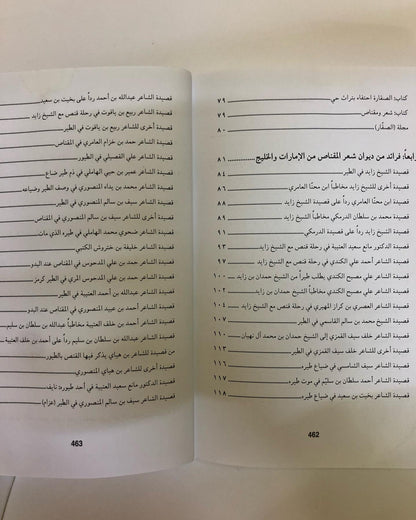 كتاب: الصقارة احتفاء بتراث حي ٧٩
كتاب: شعر ومقناص ٧٩
مجلة (الصقّار) ٨٠
رابعاً: فرائد من ديوان شعر المقناص من الإمارات والخليج ٨١
قصيدة الشيخ زايد في الطير ٨٤
قصيدة أخرى للشيخ زايد مخاطباً ابن محنّا العامري ٨٦
قصيدة الشاعر ابن محنّا العامري رداً على قصيدة الشيخ زايد ٨٨
قصيدة محمد بن سلطان الدرمكي مخاطباً الشيخ زايد ٨٩
قصيدة الشيخ زايد رداً على قصيدة الدرمكي ٩١
قصيدة الدكتور مانع سعيد العتيبة في رحلة قنص مع الشيخ زايد ٩٣
قصيدة الشاعر أحمد علي الكندي في رحلة قنص مع الشيخ زايد ٩٧
قصيدة الشاعر علي مصبح الكندي يطلب طيراً من الشيخ حمدان بن زايد ١٠٠
قصيدة الشاعر علي مصبح الكندي مخاطباً الشيخ حمدان بن زايد ١٠٢
قصيدة الشاعر العصري بن كراز المهيري في رحلة قنص مع الشيخ زايد ١٠٤
قصيدة الشيخ محمد بن سالم القاسمي في الطير
قصيدة الشاعر خلف سيف القمزي إلى الشيخ حمدان بن محمد آل نهيان ١١٠
قصيدة أخرى للشاعر خلف سيف القمزي في الطير ١١٣
قصيدة الشاعر سيف الشامسي في ضياع طيره ١١٦
قصيدة الشاعر أحمد سلطان بن سليّم في موت طيره ١١٧
قصيدة الشاعر بخيت بن سعيد في ضياع طيره ١١٨
462
قصيدة الشاعر عبدالله بن أحمد رداً على بخيت بن سعيد
قصيدة الشاعر ربيع بن ياقوت في رحلة قنص مع الشيخ زايد
قصيدة أخرى للشاعر ربيع بن ياقوت في الطير
قصيدة الشاعر حمد بن خزام العامري في المقناص
قصيدة الشاعر علي القصيلي في الطيور
قصيدة الشاعر عمير بن حبي الهاملي في ذم طير ضاع
قصيدة الشاعر محمد بن يداه المنصوري في وصف الطير وضياعه
قصيدة الشاعر سيف بن سالم المنصوري في الطير
قصيدة أخرى للشاعر سيف بن سالم المنصوري في المقناص
قصيدة الشاعر ضحوي محمد الهاملي في طيره الذي مات
قصيدة الشاعر خليفة بن ختروش الكتبي
قصيدة الشاعر حمد بن علي المدحوس في المقناص عند البدو
قصيدة الشاعر حمد بن علي المدحوس المري في الطير كرمز
قصيدة الشاعر عبدالله بن أحمد العتيبة في الطير
قصيدة الشاعر أحمد بن عبيد المنصوري في المقناص عند البدو
قصيدة الشاعر أحمد بن خلف العتيبة مخاطباً عبدالله بن سلطان بن سليم
قصيدة الشاعر عبدالله بن سلطان بن سليم رداً على أحمد بن خلف العتيبة
من قصيدة للشاعر بن هياي يذكر فيها القنص بالطيور
قصيدة أخرى للشاعر بن هياي المنصوري
قصيدة الدكتور مانع سعيد العتيبة في أحد طيوره: نايف
قصيدة الشاعر سيف بن سالم المنصوري في الطير (عزام)
463